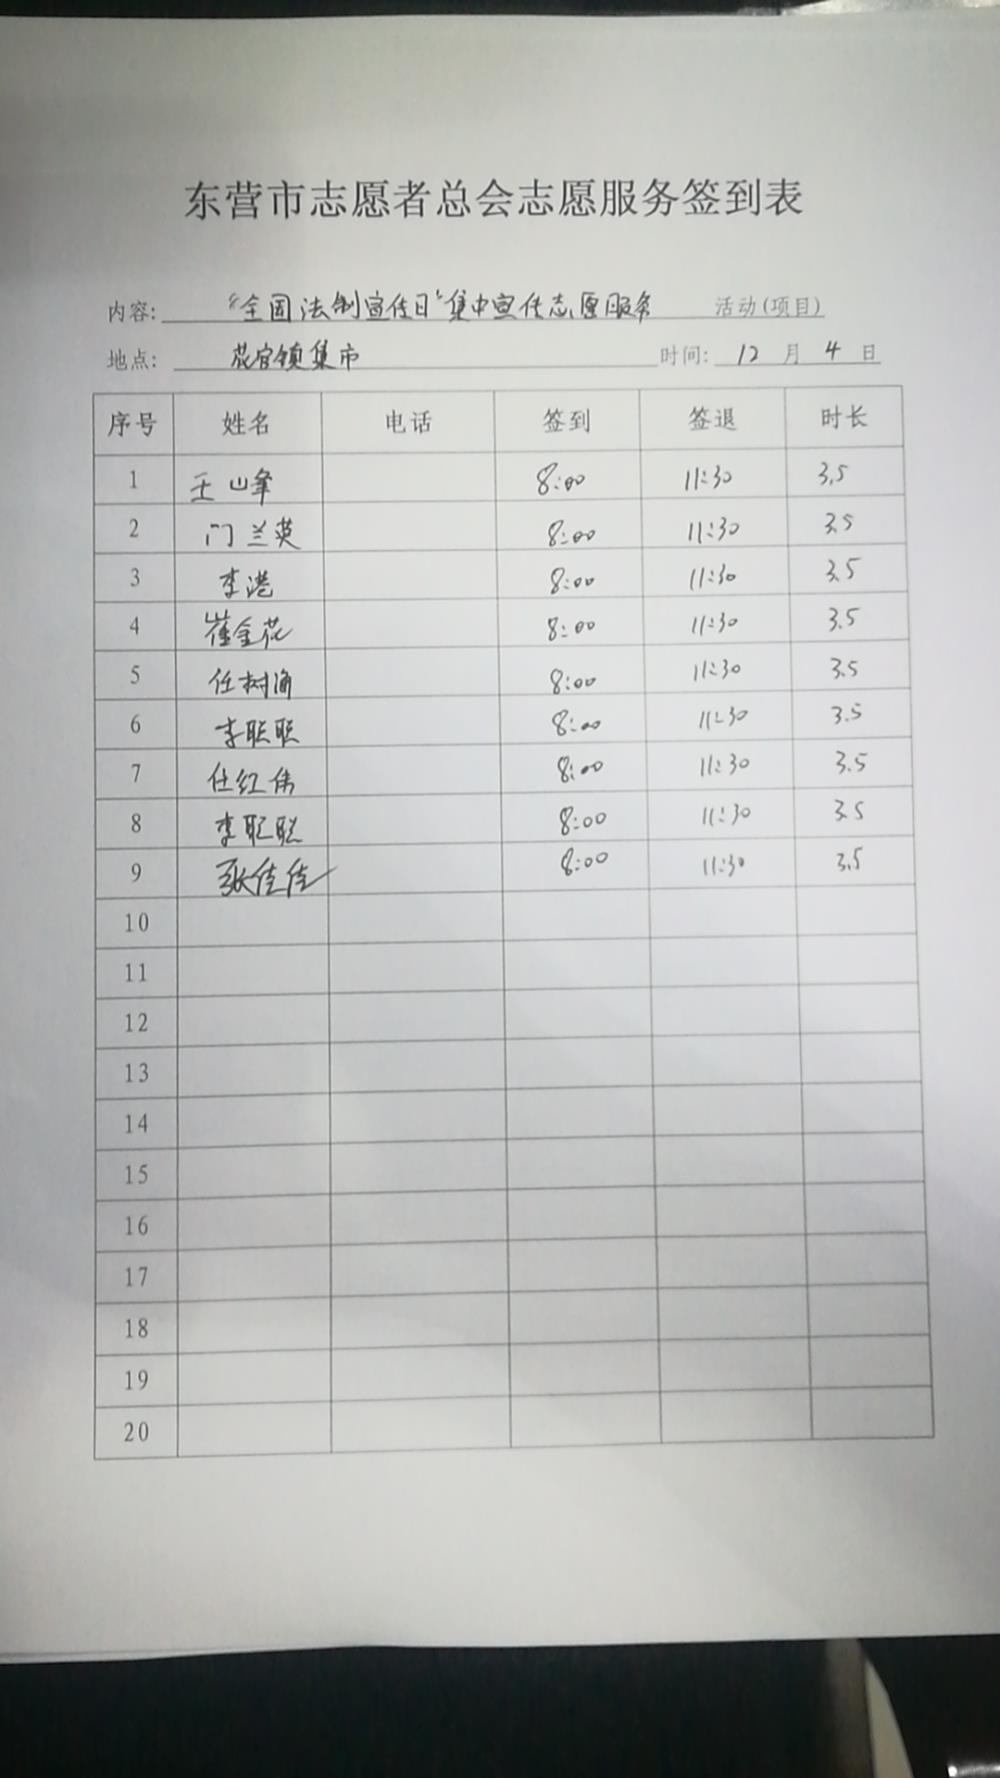 东营市志愿者总会志愿服务签到表
内容: "全国法制宣传日"集中宣传志愿服务 活动(项目)
地点: 花官镇集市 时间: 12 月 4 日
序号 姓名 电话 签到 签退 时长
1 王山峰 8:00 11:30 3.5
2 门兰英 8:00 11:30 3.5
3 李港 8:00 11:30 3.5
4 崔金花 8:00 11:30 3.5
5 任树海 8:00 11:30 3.5
6 李聪聪 8:00 11:30 3.5
7 任红伟 8:00 11:30 3.5
8 李聪聪 8:00 11:30 3.5
9 张佳佳 8:00 11:30 3.5
10
11
12
13
14
15
16
17
18
19
20